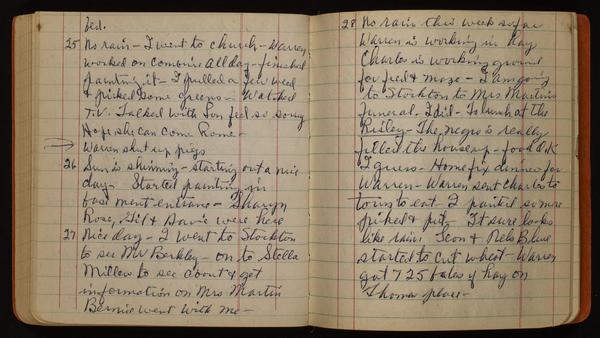 bed.
25 No rain - I went to church - Warren
worked on combine all day - finished
painting it - I pulled a few weed
& picked some greens - Watched
T.V. Talked with Lou feel so sorry
Hope she can come Rome -
→ Warren shut up pigs
26 Sun is shinning - starting out a nice
day - Started painting in
basement entrance - Sharyn
Rose, Gil & Davie were here
27 Nice day - I went to Stockton
to see Mr Berkley - on to Stella
Millers to see about & get
information on Mrs Martin
Bernie went with me -
28 No rain this week so far
Warren is working in hay
Charles is working ground
for feed & maze - I am going
to Stockton to Mrs Martins
funeral. I did - To lunch at the
Ridley - The negro is really
filled the house up - food OK
I guess - Home fix dinner for
Warren - Warren sent Charles to
town to eat - I painted some more
picked & put It sure looks
like rain, Leon & Nels Blue
started to cut wheat - Warren
got 725 bales of hay on
Thomas place -